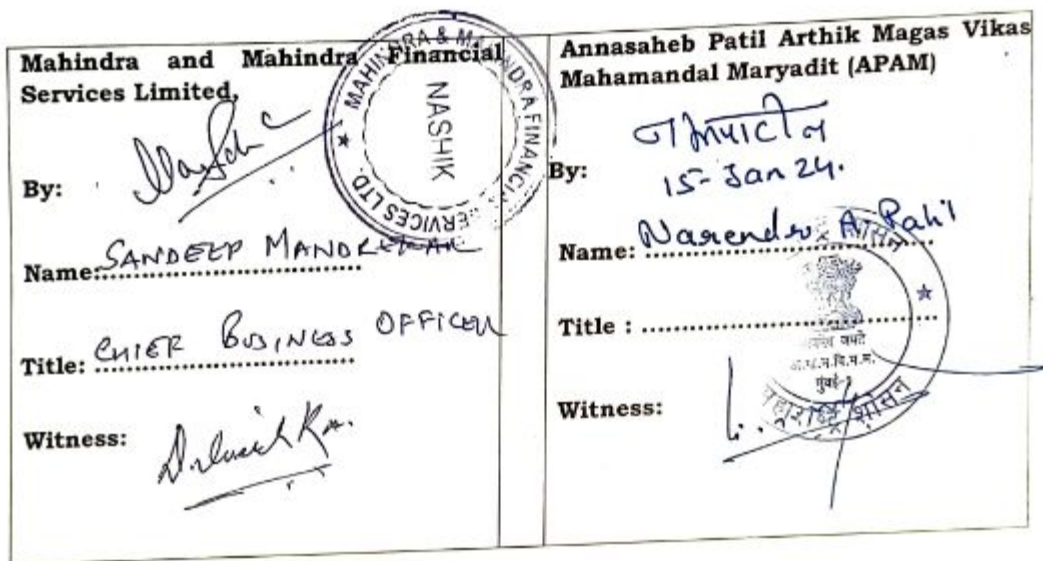 Mahindra and Mahindra Financial
Services Limited,
By:
Name: SANDEEP MANDREKAR
Title: CHIEF BUSINESS OFFICER
Witness:
★ MAHINDRA & MAHINDRA FINANCIAL SERVICES LTD.
NASHIK
Annasaheb Patil Arthik Magas Vikas
Mahamandal Maryadit (APAM)
By:
15-Jan 24.
Name: Narendra A. Patil
Title :
Witness:
महाराष्ट्र शासन
मुंबई-१